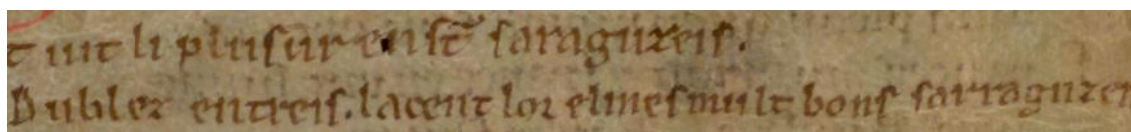 t uit li plusur en st̃ saraguzeis.
Dublez entreis. lacent lor elmes mult bons sarraguzei